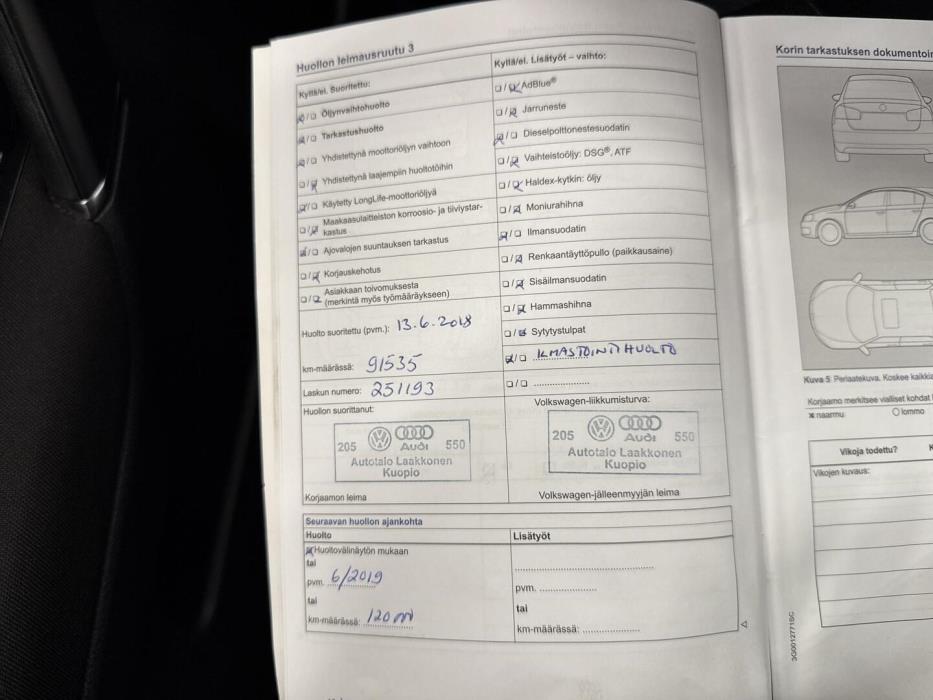 Huollon leimausruutu 3
Kyllä/ei. Suoritettu:
☒/☐ Öljynvaihtohuolto
☒/☐ Tarkastushuolto
☒/☐ Yhdistettynä moottoriöljyn vaihtoon
☐/☒ Yhdistettynä laajempiin huoltotöihin
☒/☐ Käytetty LongLife-moottoriöljyä
☐/☒ Maakaasulaitteiston korroosio- ja tiiviystar-
kastus
☒/☐ Ajovalojen suuntauksen tarkastus
☐/☒ Korjauskehotus
☐/☒ Asiakkaan toivomuksesta
(merkintä myös työmääräykseen)
Huolto suoritettu (pvm.): 13.6.2018
km-määrässä: 91535
Laskun numero: 251193
Huollon suorittanut:
205 Audi 550
Autotalo Laakkonen
Kuopio
Korjaamon leima
Kyllä/ei. Lisätyöt – vaihto:
☐/☒ AdBlue®
☐/☒ Jarruneste
☒/☐ Dieselpolttonestesuodatin
☐/☒ Vaihteistoöljy: DSG®, ATF
☐/☒ Haldex-kytkin: öljy
☐/☒ Moniurahihna
☒/☐ Ilmansuodatin
☐/☒ Renkaantäyttöpullo (paikkausaine)
☐/☒ Sisäilmansuodatin
☐/☒ Hammashihna
☐/☒ Sytytystulpat
☒/☐ ILMASTOINTIHUOLTO
☐/☐ ....................
Volkswagen-liikkumisturva:
205 Audi 550
Autotalo Laakkonen
Kuopio
Volkswagen-jälleenmyyjän leima
Seuraavan huollon ajankohta
Huolto
☒ Huoltovälinäytön mukaan
tai
pvm. 6/2019
tai
km-määrässä: 120
Lisätyöt
pvm. ....................
tai
km-määrässä: ....................
Korin tarkastuksen
Kuva 5 Periaatekuva. Koskee
Korjaamo merkitsee vialliset kohdat
✖ naarmu ○ lommo
Vikoja todettu?
Vikojen kuvaus:
3G0012771SC